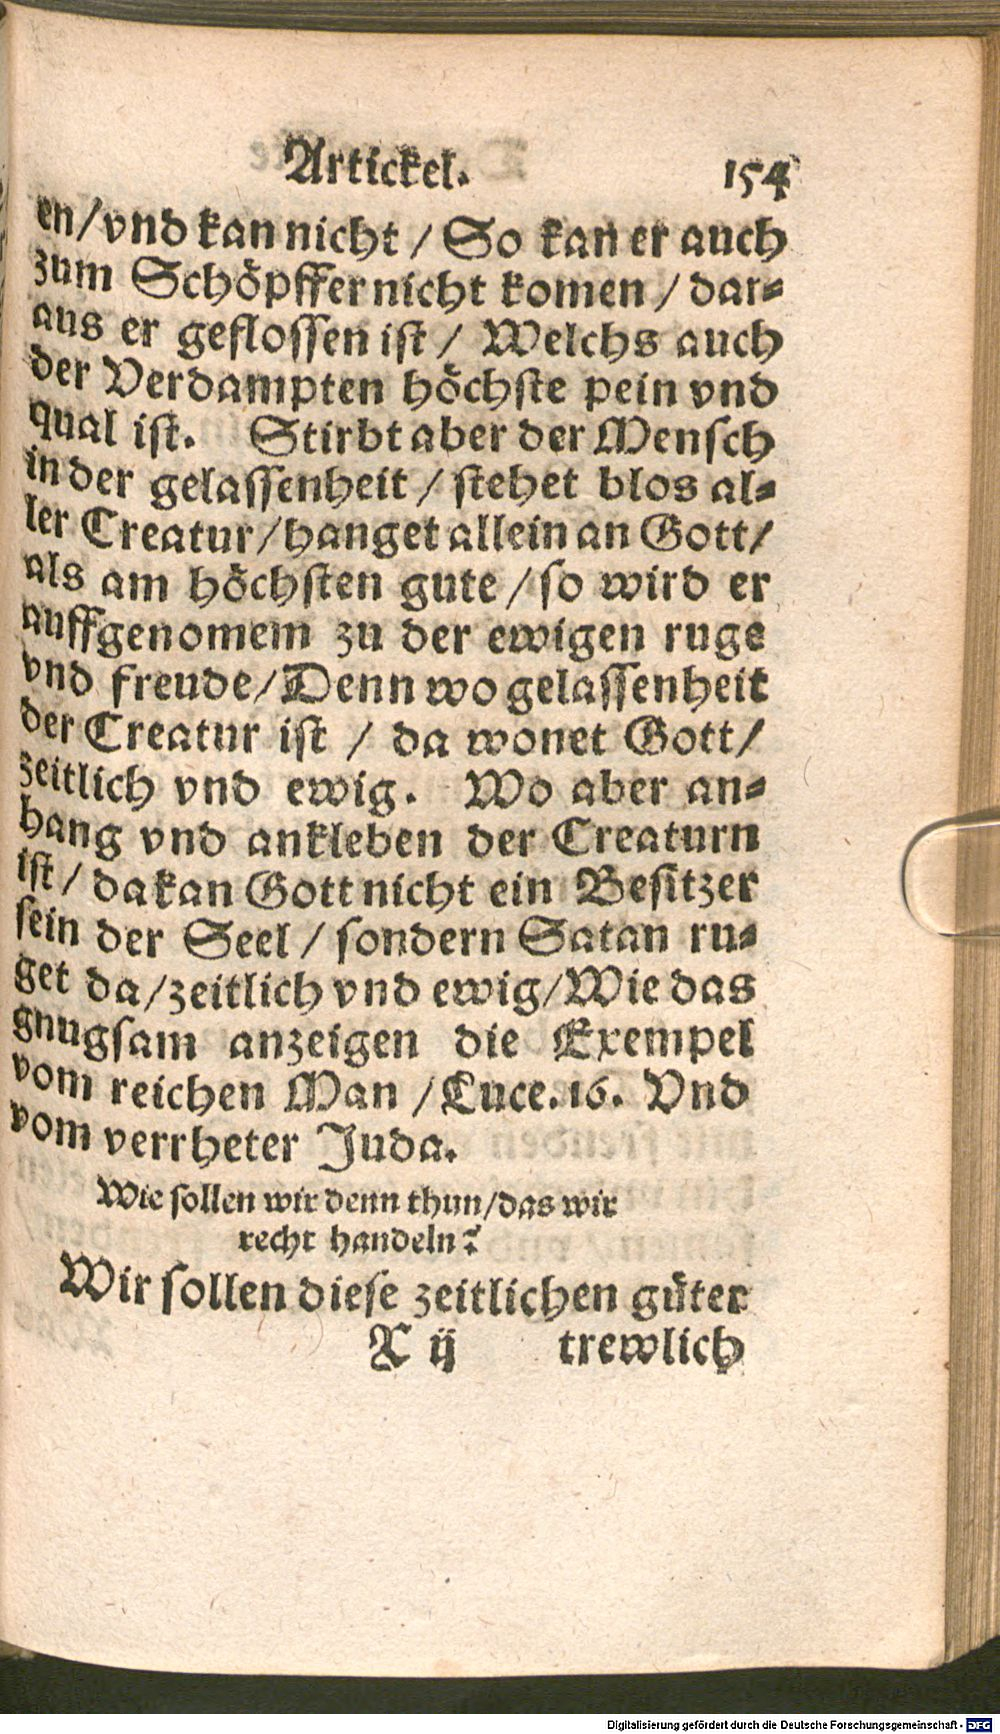 Artickel. 154
en/vnd kan nicht / So kan er auch
zum Schöpffer nicht komen / dar⸗
aus er geflossen ist / Welchs auch
der Verdampten höchste pein vnd
qual ist. Stirbt aber der Mensch
in der gelassenheit / stehet blos al⸗
ler Creatur/hanget allein an Gott/
als am höchsten gute / so wird er
auffgenomem zu der ewigen ruge
vnd freude/Denn wo gelassenheit
der Creatur ist / da wonet Gott/
zeitlich vnd ewig. Wo aber an⸗
hang vnd ankleben der Creaturn
ist / da kan Gott nicht ein Besitzer
sein der Seel / sondern Satan ru⸗
get da/zeitlich vnd ewig/Wie das
gnugsam anzeigen die Exempel
vom reichen Man / Luce. 16. Vnd
vom verrheter Juda.
Wie sollen wir denn thun/das wir
recht handeln?
Wir sollen diese zeitlichen güter
X ij trewlich
Digitalisierung gefördert durch die Deutsche Forschungsgemeinschaft - DFG